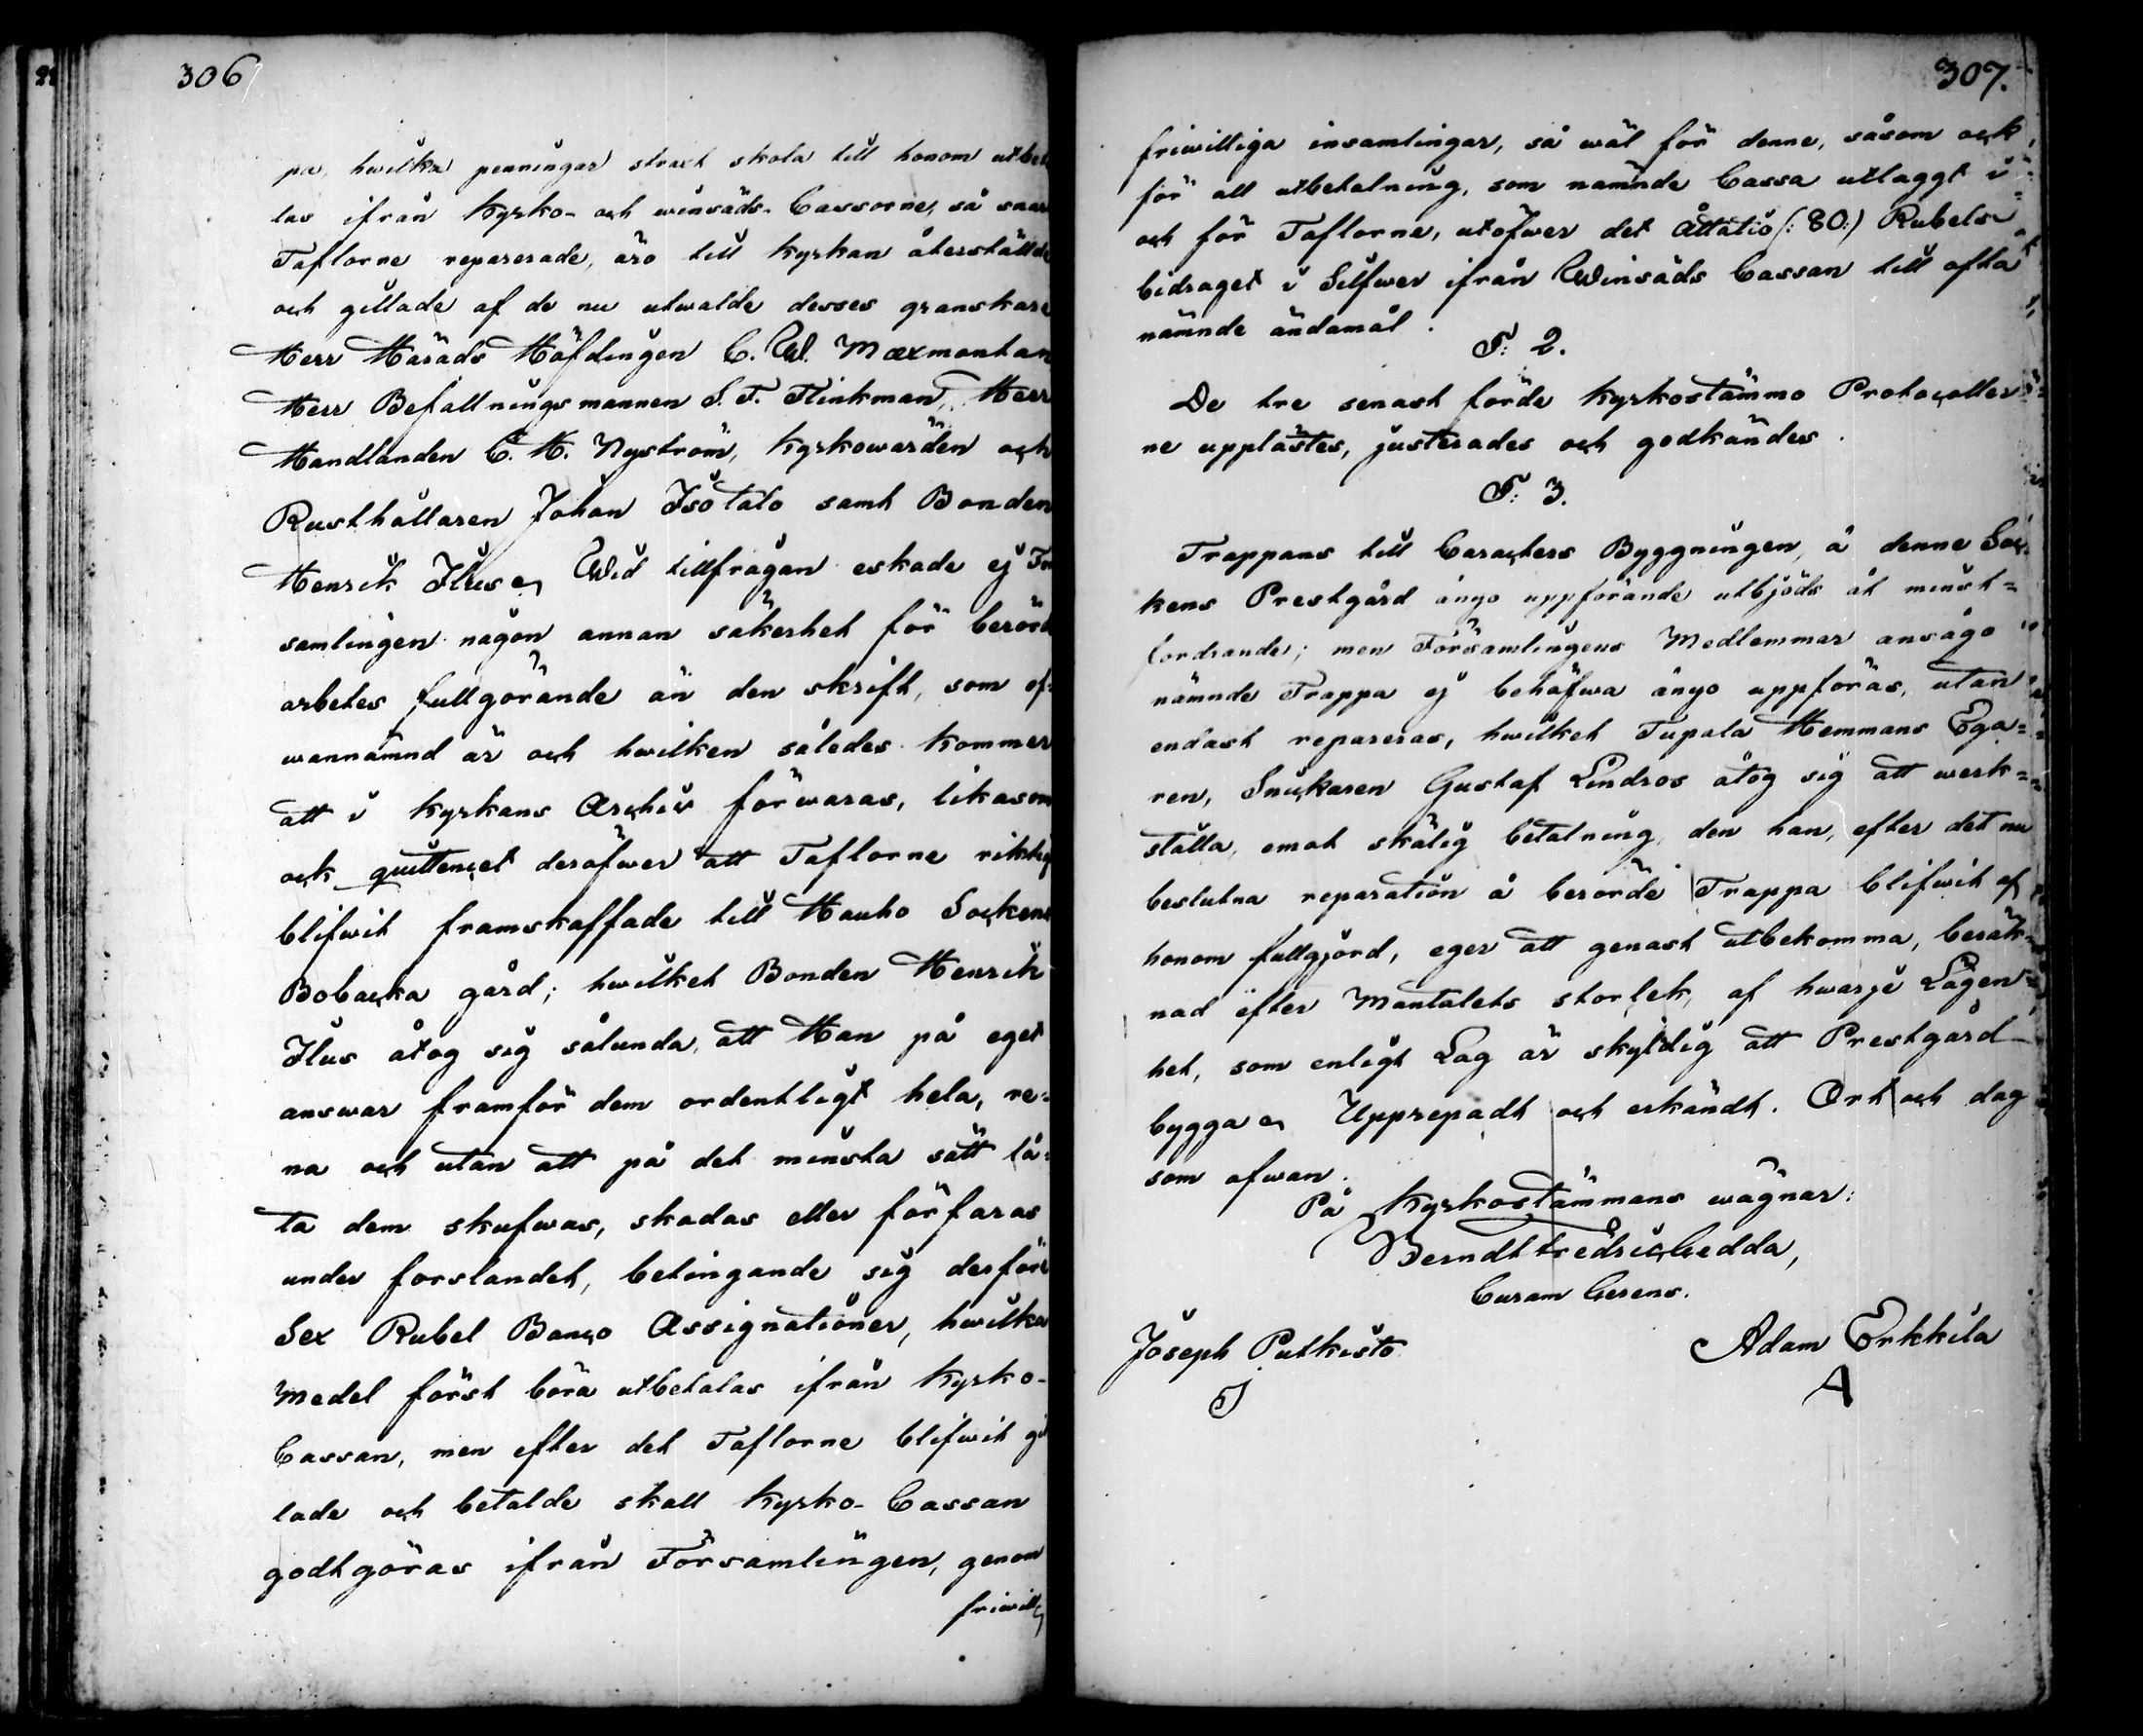 306
pa, hwilka penningar straxt skola till honom utbeta
las ifrån Kyrko- och winsäds-Cassorne, så snart
Taflorne reparerade, äro till Kyrkan återställde
och gillade af de nu utwalde desses granskare
Herr Härads Höfdingen C. W. Maxmontan
Herr Befallningsmannen S. F. Flinkman, Herr
Handlanden C. H. Nyström, Kyrkowärden och
Rusthållaren Johan Isotalo samt Bonden
Henrik Ilus. Wid tillfrågan eskade ej För
samlingen någon annan säkerhet för berörd
arbetes fullgörande än den skrift, som of-
wannämnd är och hwilken således kommer
att i Kyrkans Archiv förwaras, likasom
ock quittencet deröfwer att Taflorne riktig
blifwit framskaffade till Hauho Sockens
Bobacka gård; hwilket Bonden Henrik
Ilus åtog sig sålunda, att Han på eget
answar framför dem ordentligt hela, re-
na och utan att på det minsta sätt lå-
ta dem skufwas, skadas eller förfaras
under forslandet, betingande sig derför
Sex Rubel Banco Assignationer, hwilka
Medel först böra utbetalas ifrån Kyrko-
Cassan, men efter det Taflorne blifwit gil
lade och betalde skall Kyrko-Cassan
godtgöras ifrån Församlingen, genom
friwill
307.
friwilliga insamlingar, så wäl för denne, såsom ock
för all utbetalning, som nämnde Cassa utlaggt i
och för Taflorne, utöfwer det Åttatio (: 80:) Rubels
bidraget i Silfwer ifrån Winsäds Cassan till ofta
nämnde ändamål.
§: 2.
De tre senast förde Kyrkostämmo Protocoller
ne upplästes, justerades och godkändes.
§: 3.
Trappans till Caracters Byggningen, å denne Soc
kens Prestgård ånyo uppförande utbjöds åt minst-
fordrande; men Församlingens Medlemmar ansågo
nämnde Trappa ej behöfwa ånyo uppföras, utan
endast repareras, hwilket Tupala Hemmans Ega-
ren, Snickaren Gustaf Lindros åtog sig att werk-
ställa, emot skälig betalning, den han, efter det nu
beslutna reparation å berörde Trappa blifwit af
honom fullgjord, eger att genast utbekomma, beräk-
nad efter Mantalets storlek, af hwarje Lägen-
het, som enligt Lag är skyldig att Prestgård
bygga. Upprepadt och erkändt. Ort och dag
som ofwan.
På Kyrkostämmans wägnar:
Berndt Fredric Gedda,
Curam Gerens.
Joseph Putkisto
Adam Erkkila
J
A